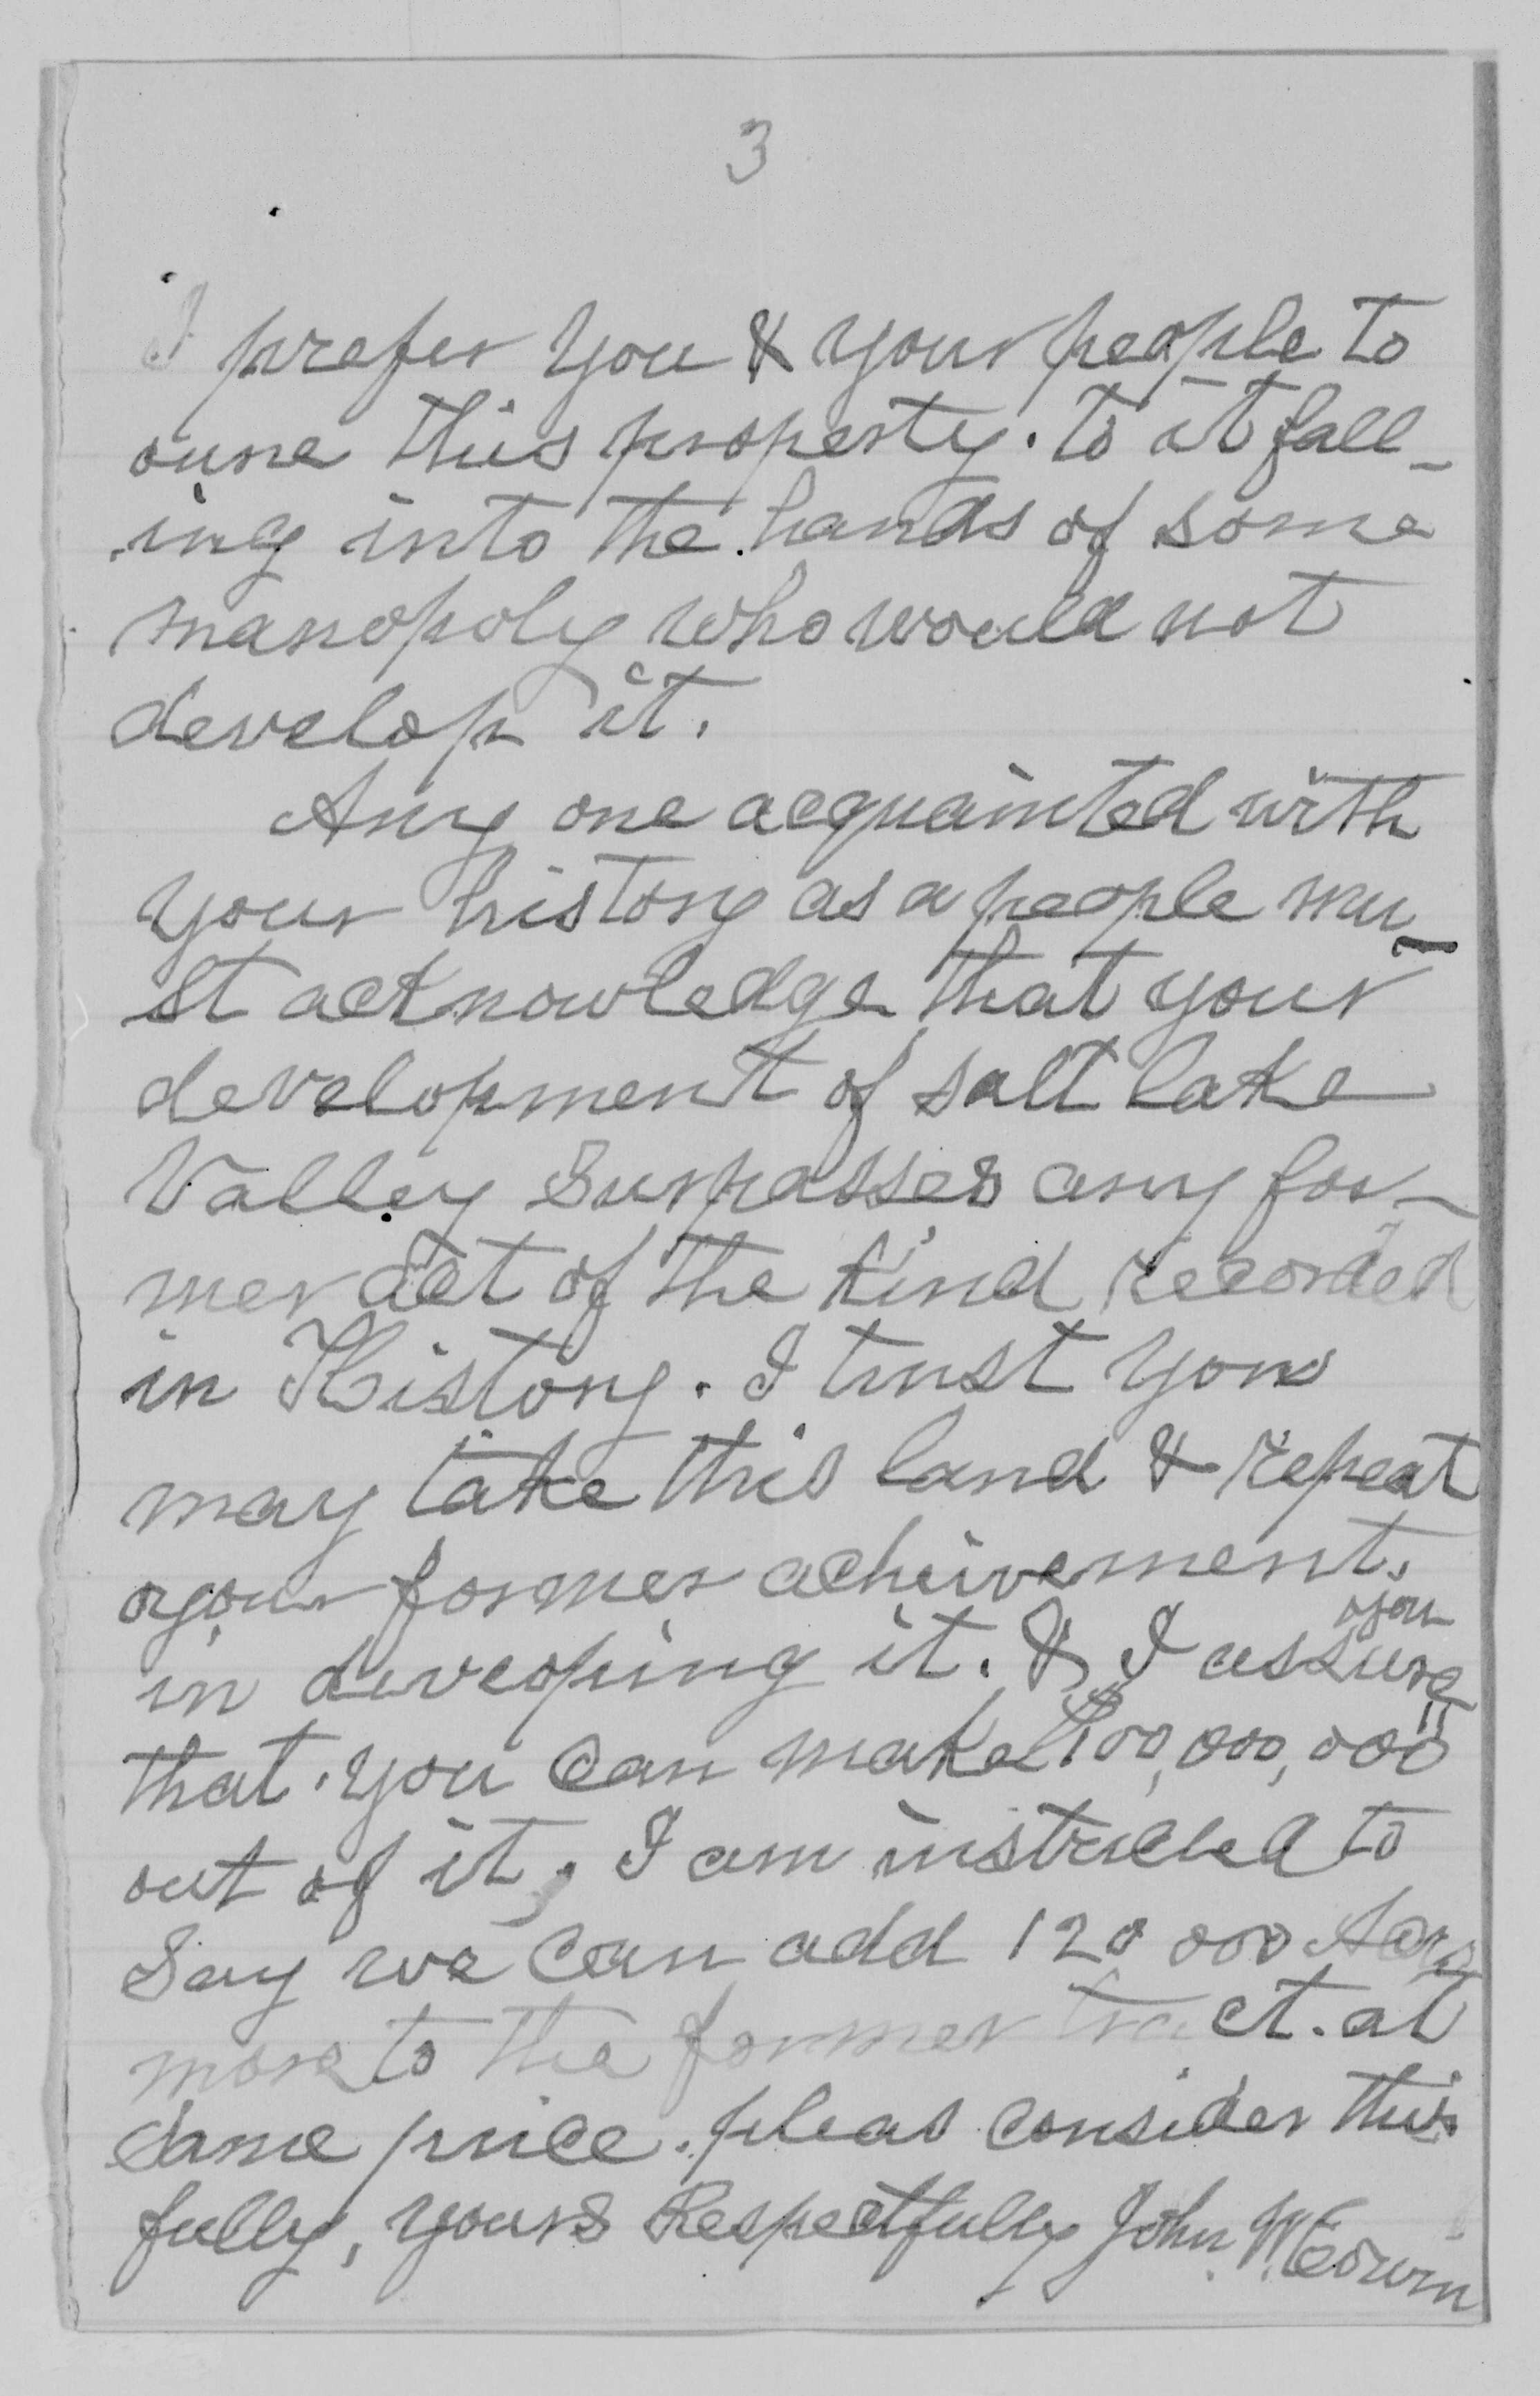 3
I prefer you & your people to
oune this property. to it fall-
ing into the hands of some
manopoly who would not
develop it.
Any one acquainted with
your history as a people mu-
st acknowledge that your
development of salt lake
Valley Surpasses any for-
mer act of the kind recorded
in History. I trust you
may take this land & repeat
your former acheivement.
in deveoping it. & I assure you
that you can make $100,000,000
out of it, I am instructed to
Say we can add 120 000 Acrs
more to the former tract. at
Same price. pleas consider this
fully, yours Respectfully John W.